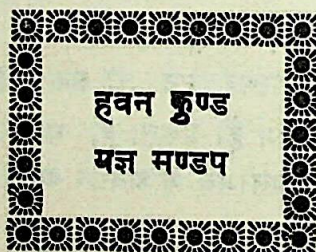 हवन कुण्ड
यज्ञ मण्डप